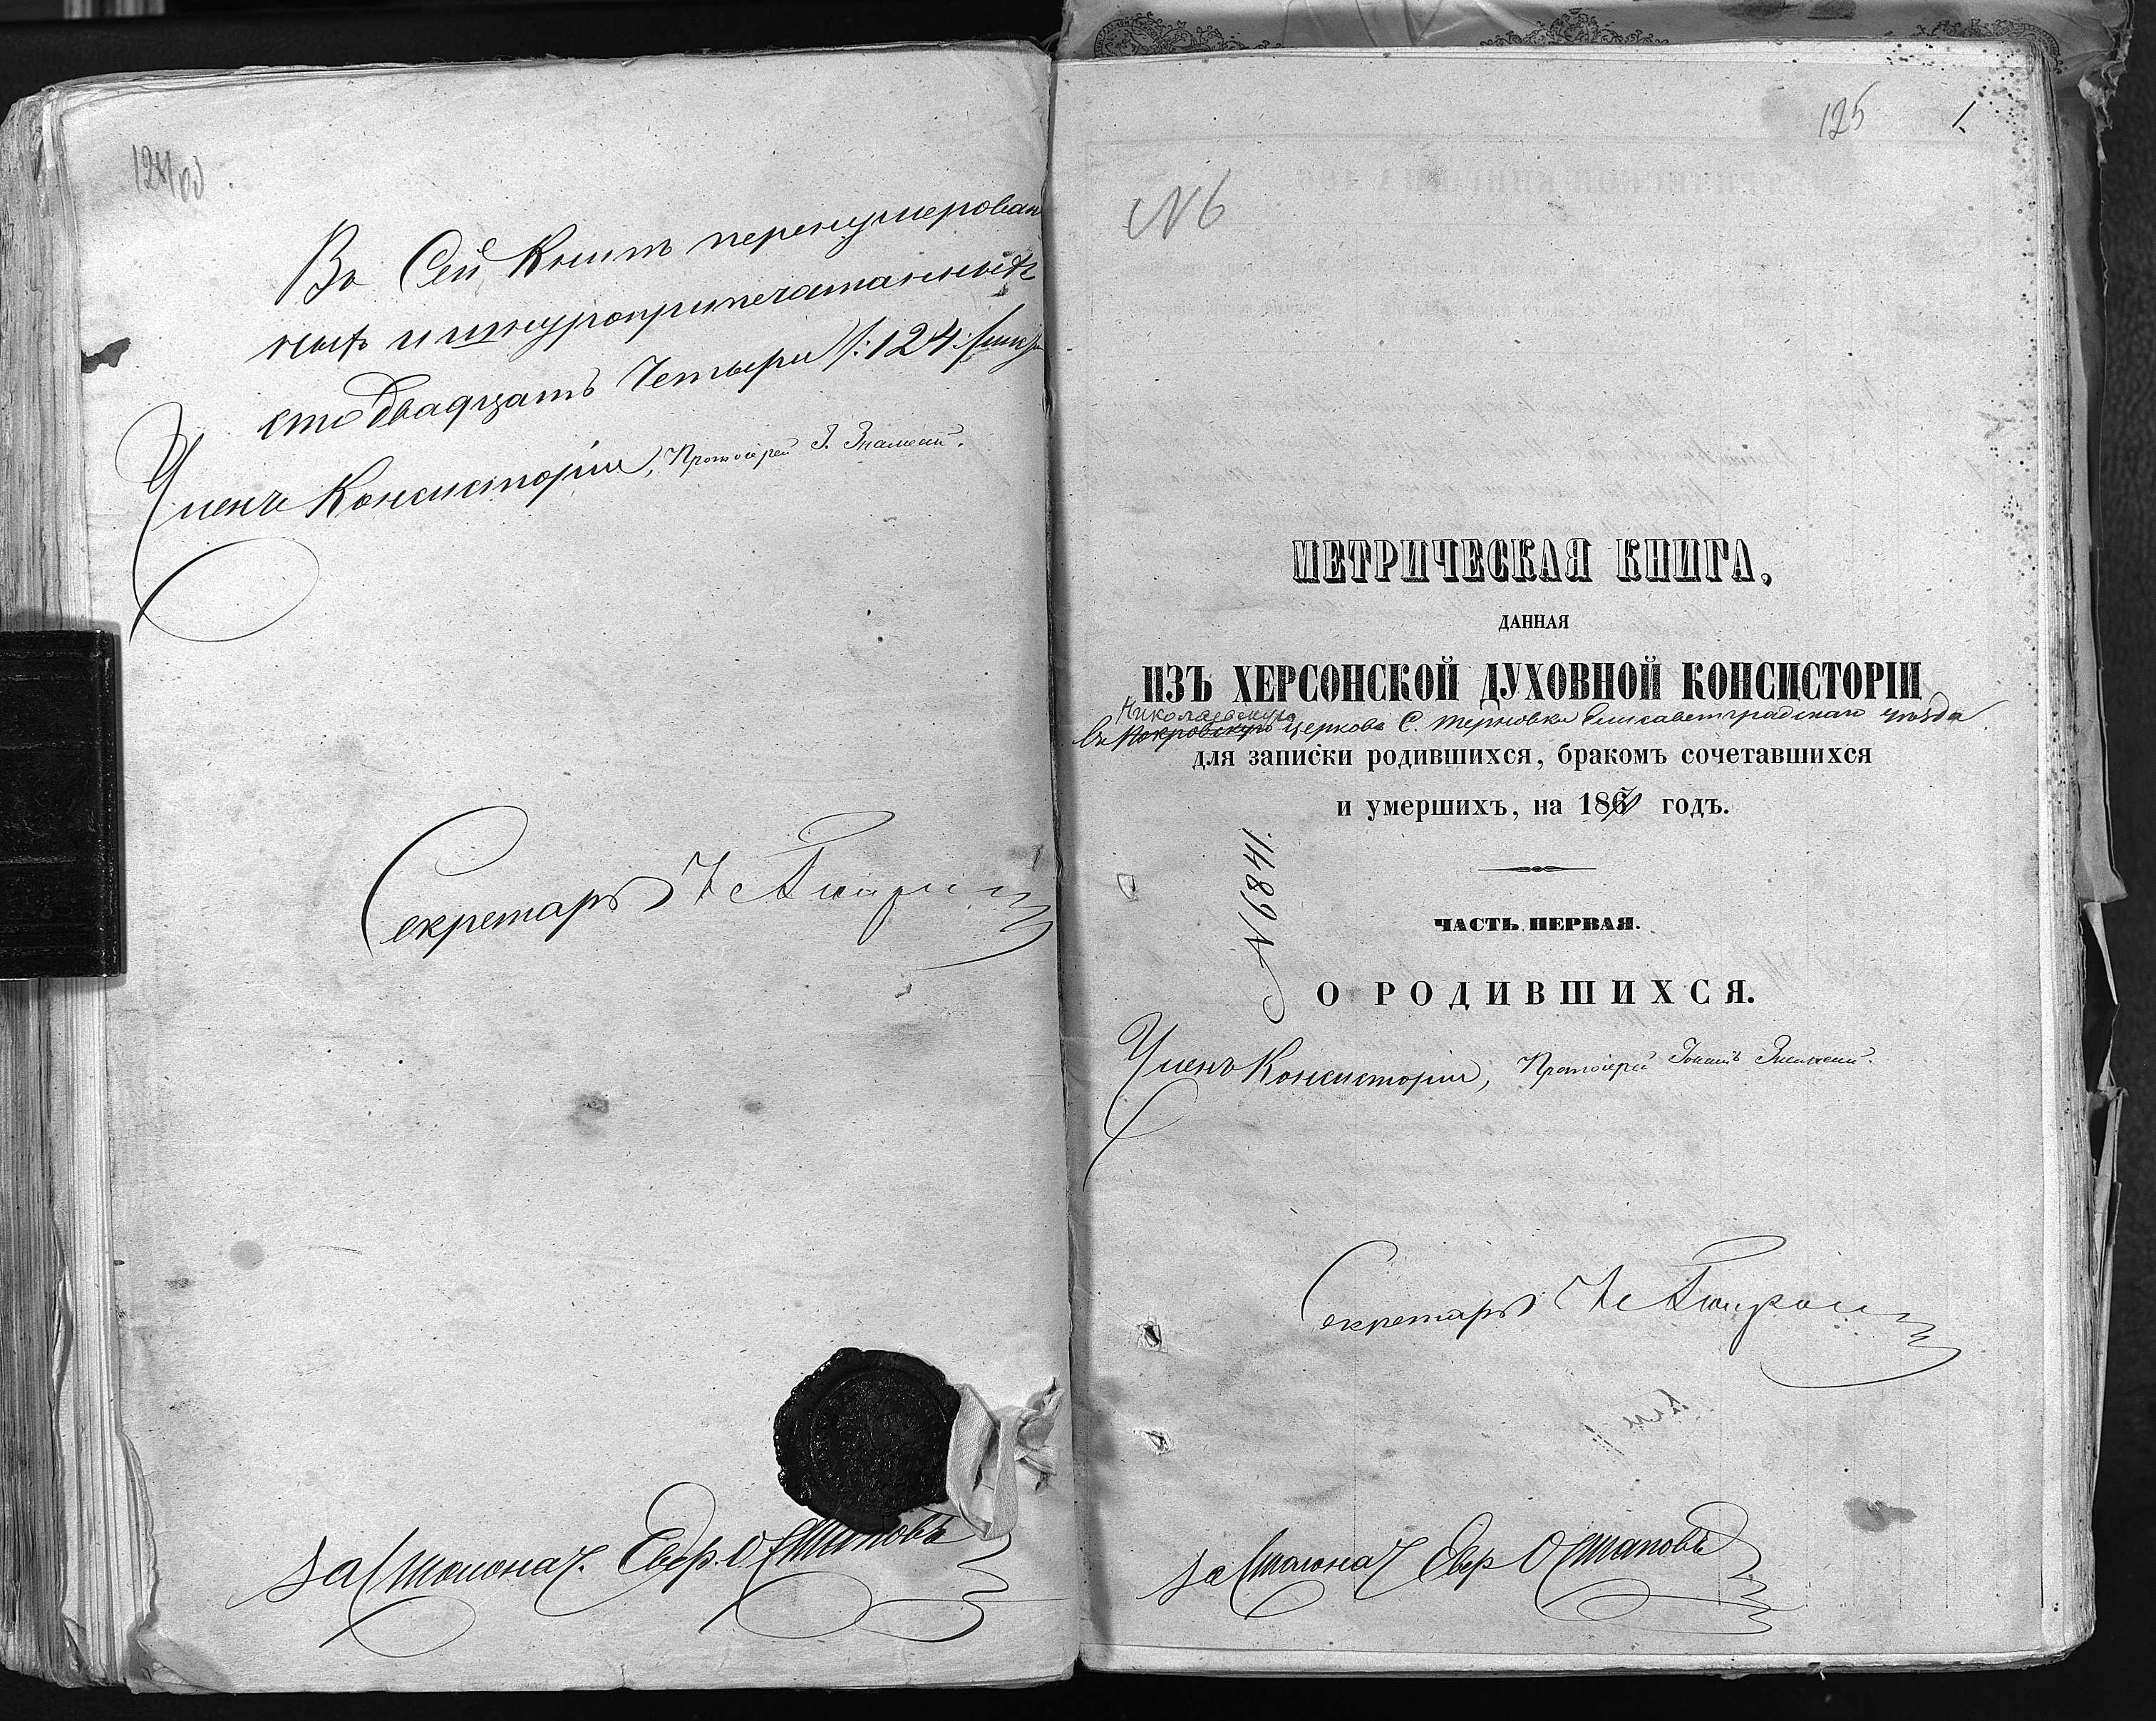 Въ Сей Книгѣ перенумерован
ныхъ и шнуроприпечатанныхъ
сто двадцать Четыре /:124:/ листа
Членъ Консисторіи, Протоіерей І. Знамен
Секретарь
За Столонач. Евгр. Остаповъ
125 1.
N 6
МЕТРИЧЕСКАЯ КНИГА,
ДАННАЯ
ИЗЪ ХЕРСОНСКОЙ ДУХОВНОЙ КОНСИСТОРІИ
Николаевскую
Въ Покровскую церковь С. Терновки Елисаветградскаго уѣзда
для записки родившихся, бракомъ сочетавшихся
и умершихъ, на 186 годъ.
N 6841.
ЧАСТЬ ПЕРВАЯ.
О РОДИВШИХСЯ.
Членъ Консисторіи, Протоіерей Іоаннъ
Секретарь
За Столонач Евгр Остаповъ